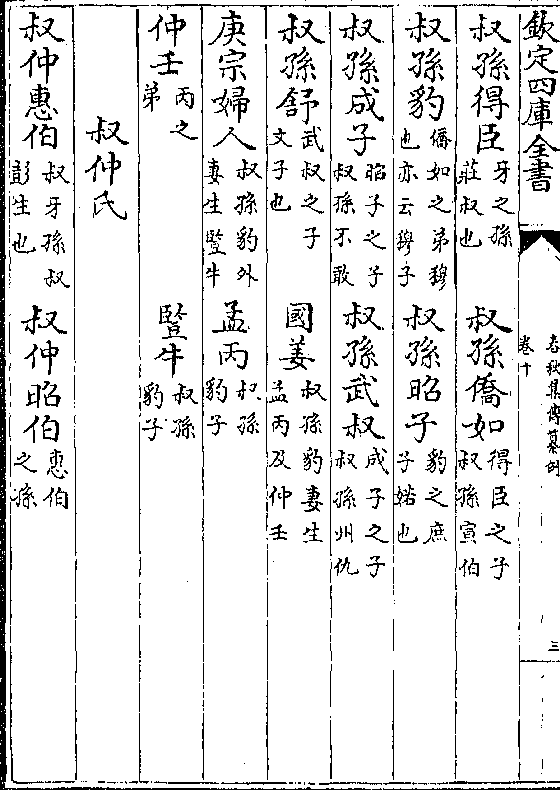 欽定四庫全書
春秋集傳纂例
卷十
三
叔孫得臣 牙之孫莊叔也 叔孫僑如 得臣之子叔孫宣伯
叔孫豹 僑如之弟穆也亦云穆子 叔孫昭子 豹之庶子婼也
叔孫成子 昭子之子叔孫不敢 叔孫武叔 成子之子叔孫州仇
叔孫舒 武叔之子文子也 國姜 叔孫豹妻生孟丙及仲壬
庚宗婦人 叔孫豹外妻生豎牛 孟丙 叔孫豹子
仲壬 丙之弟 豎牛 叔孫豹子
叔仲氏
叔仲惠伯 叔牙孫叔彭生也 叔仲昭伯 惠伯之孫